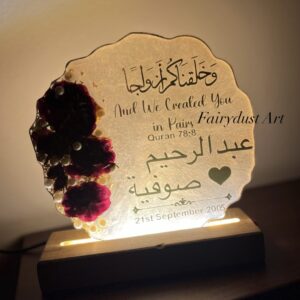 وَخَلَقْنَاكُمْ أَزْوَاجًا
And We Created You
in Pairs
Fairydust Art
Quran 78:8
عبد الرحيم
صوفية
21st September 2005